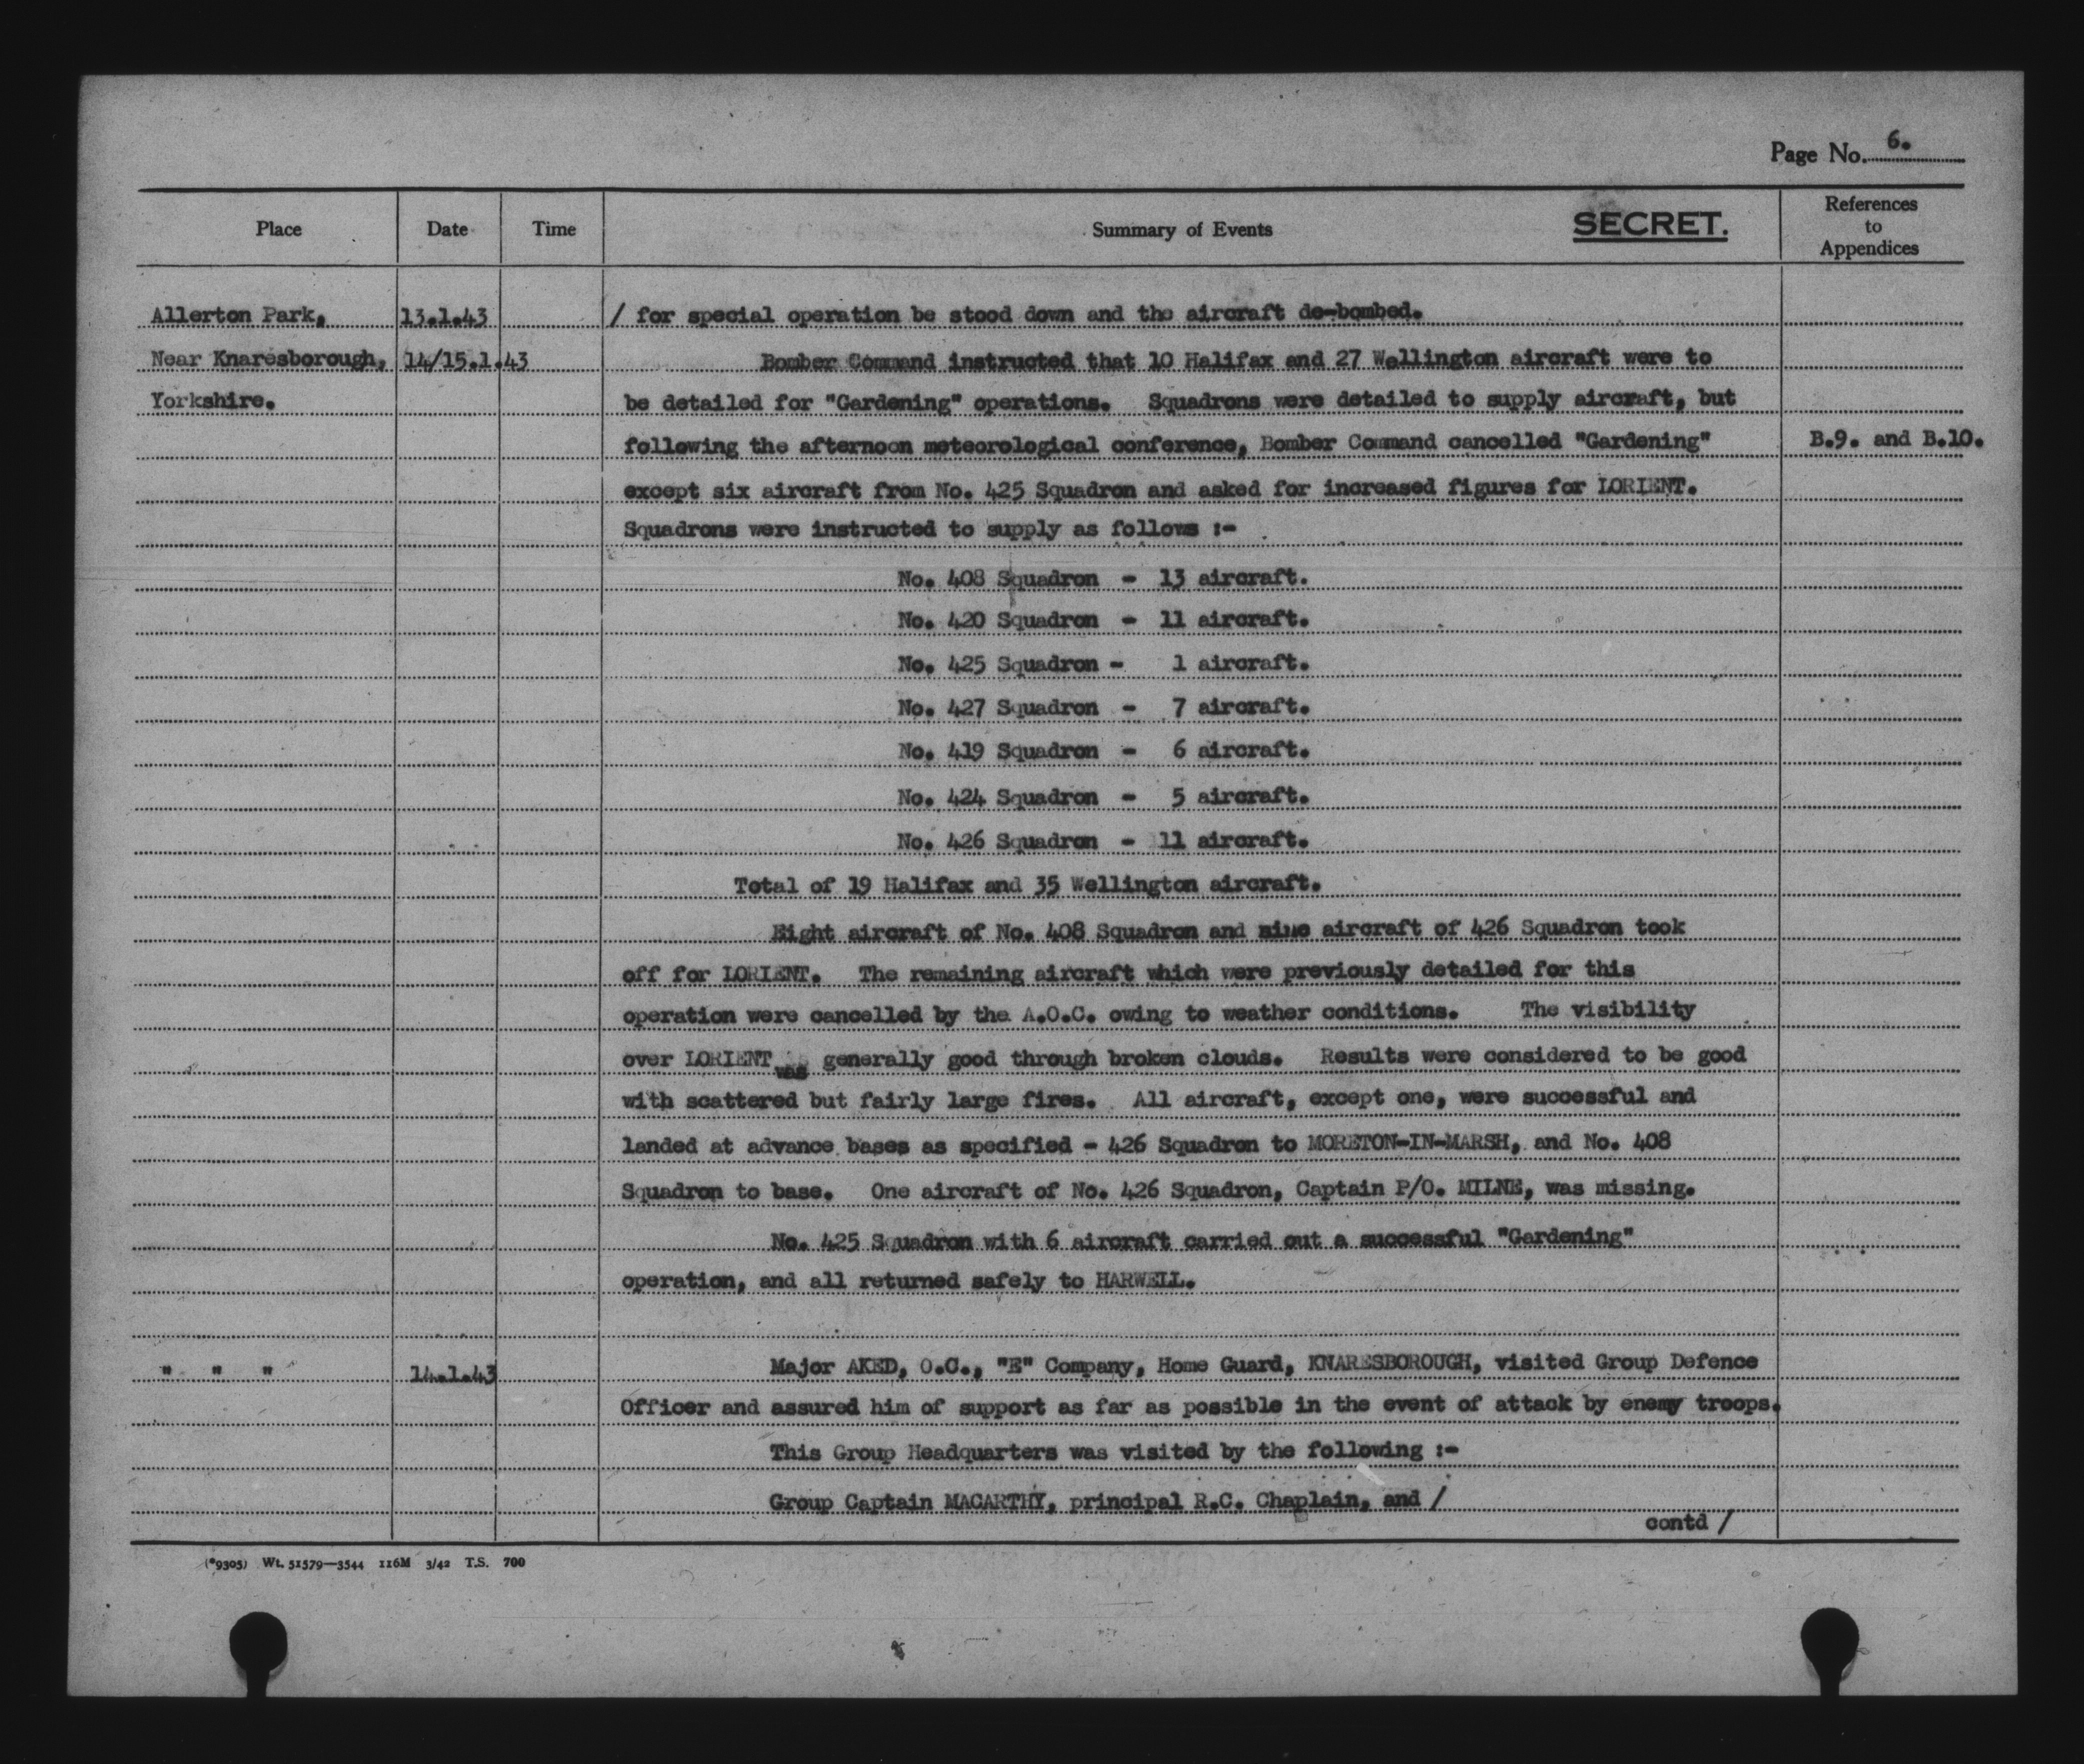 Page No. 6.
Place Date Time Summary of Events SECRET. References to Appendices
Allerton Park, 13.1.43 / for special operation be stood down and the aircraft de-bombed.
Near Knaresborough, 14/15.1.43 Bomber Command instructed that 10 Halifax and 27 Wellington aircraft were to
Yorkshire. be detailed for "Gardening" operations. Squadrons were detailed to supply aircraft, but
following the afternoon meteorological conference, Bomber Command cancelled "Gardening" B.9. and B.10.
except six aircraft from No. 425 Squadron and asked for increased figures for LORIENT.
Squadrons were instructed to supply as follows :-
No. 408 Squadron - 13 aircraft.
No. 420 Squadron - 11 aircraft.
No. 425 Squadron - 1 aircraft.
No. 427 Squadron - 7 aircraft.
No. 419 Squadron - 6 aircraft.
No. 424 Squadron - 5 aircraft.
No. 426 Squadron - 11 aircraft.
Total of 19 Halifax and 35 Wellington aircraft.
Eight aircraft of No. 408 Squadron and nine aircraft of 426 Squadron took
off for LORIENT. The remaining aircraft which were previously detailed for this
operation were cancelled by the A.O.C. owing to weather conditions. The visibility
over LORIENT was generally good through broken clouds. Results were considered to be good
with scattered but fairly large fires. All aircraft, except one, were successful and
landed at advance bases as specified - 426 Squadron to MORETON-IN-MARSH, and No. 408
Squadron to base. One aircraft of No. 426 Squadron, Captain P/O. MILNE, was missing.
No. 425 Squadron with 6 aircraft carried out a successful "Gardening"
operation, and all returned safely to HARWELL.
" " " 14.1.43 Major AKED, O.C., "E" Company, Home Guard, KNARESBOROUGH, visited Group Defence
Officer and assured him of support as far as possible in the event of attack by enemy troops.
This Group Headquarters was visited by the following :-
Group Captain MACARTHY, principal R.C. Chaplain, and /
contd /
(*9305) Wt. 51579—3544 116M 3/42 T.S. 700